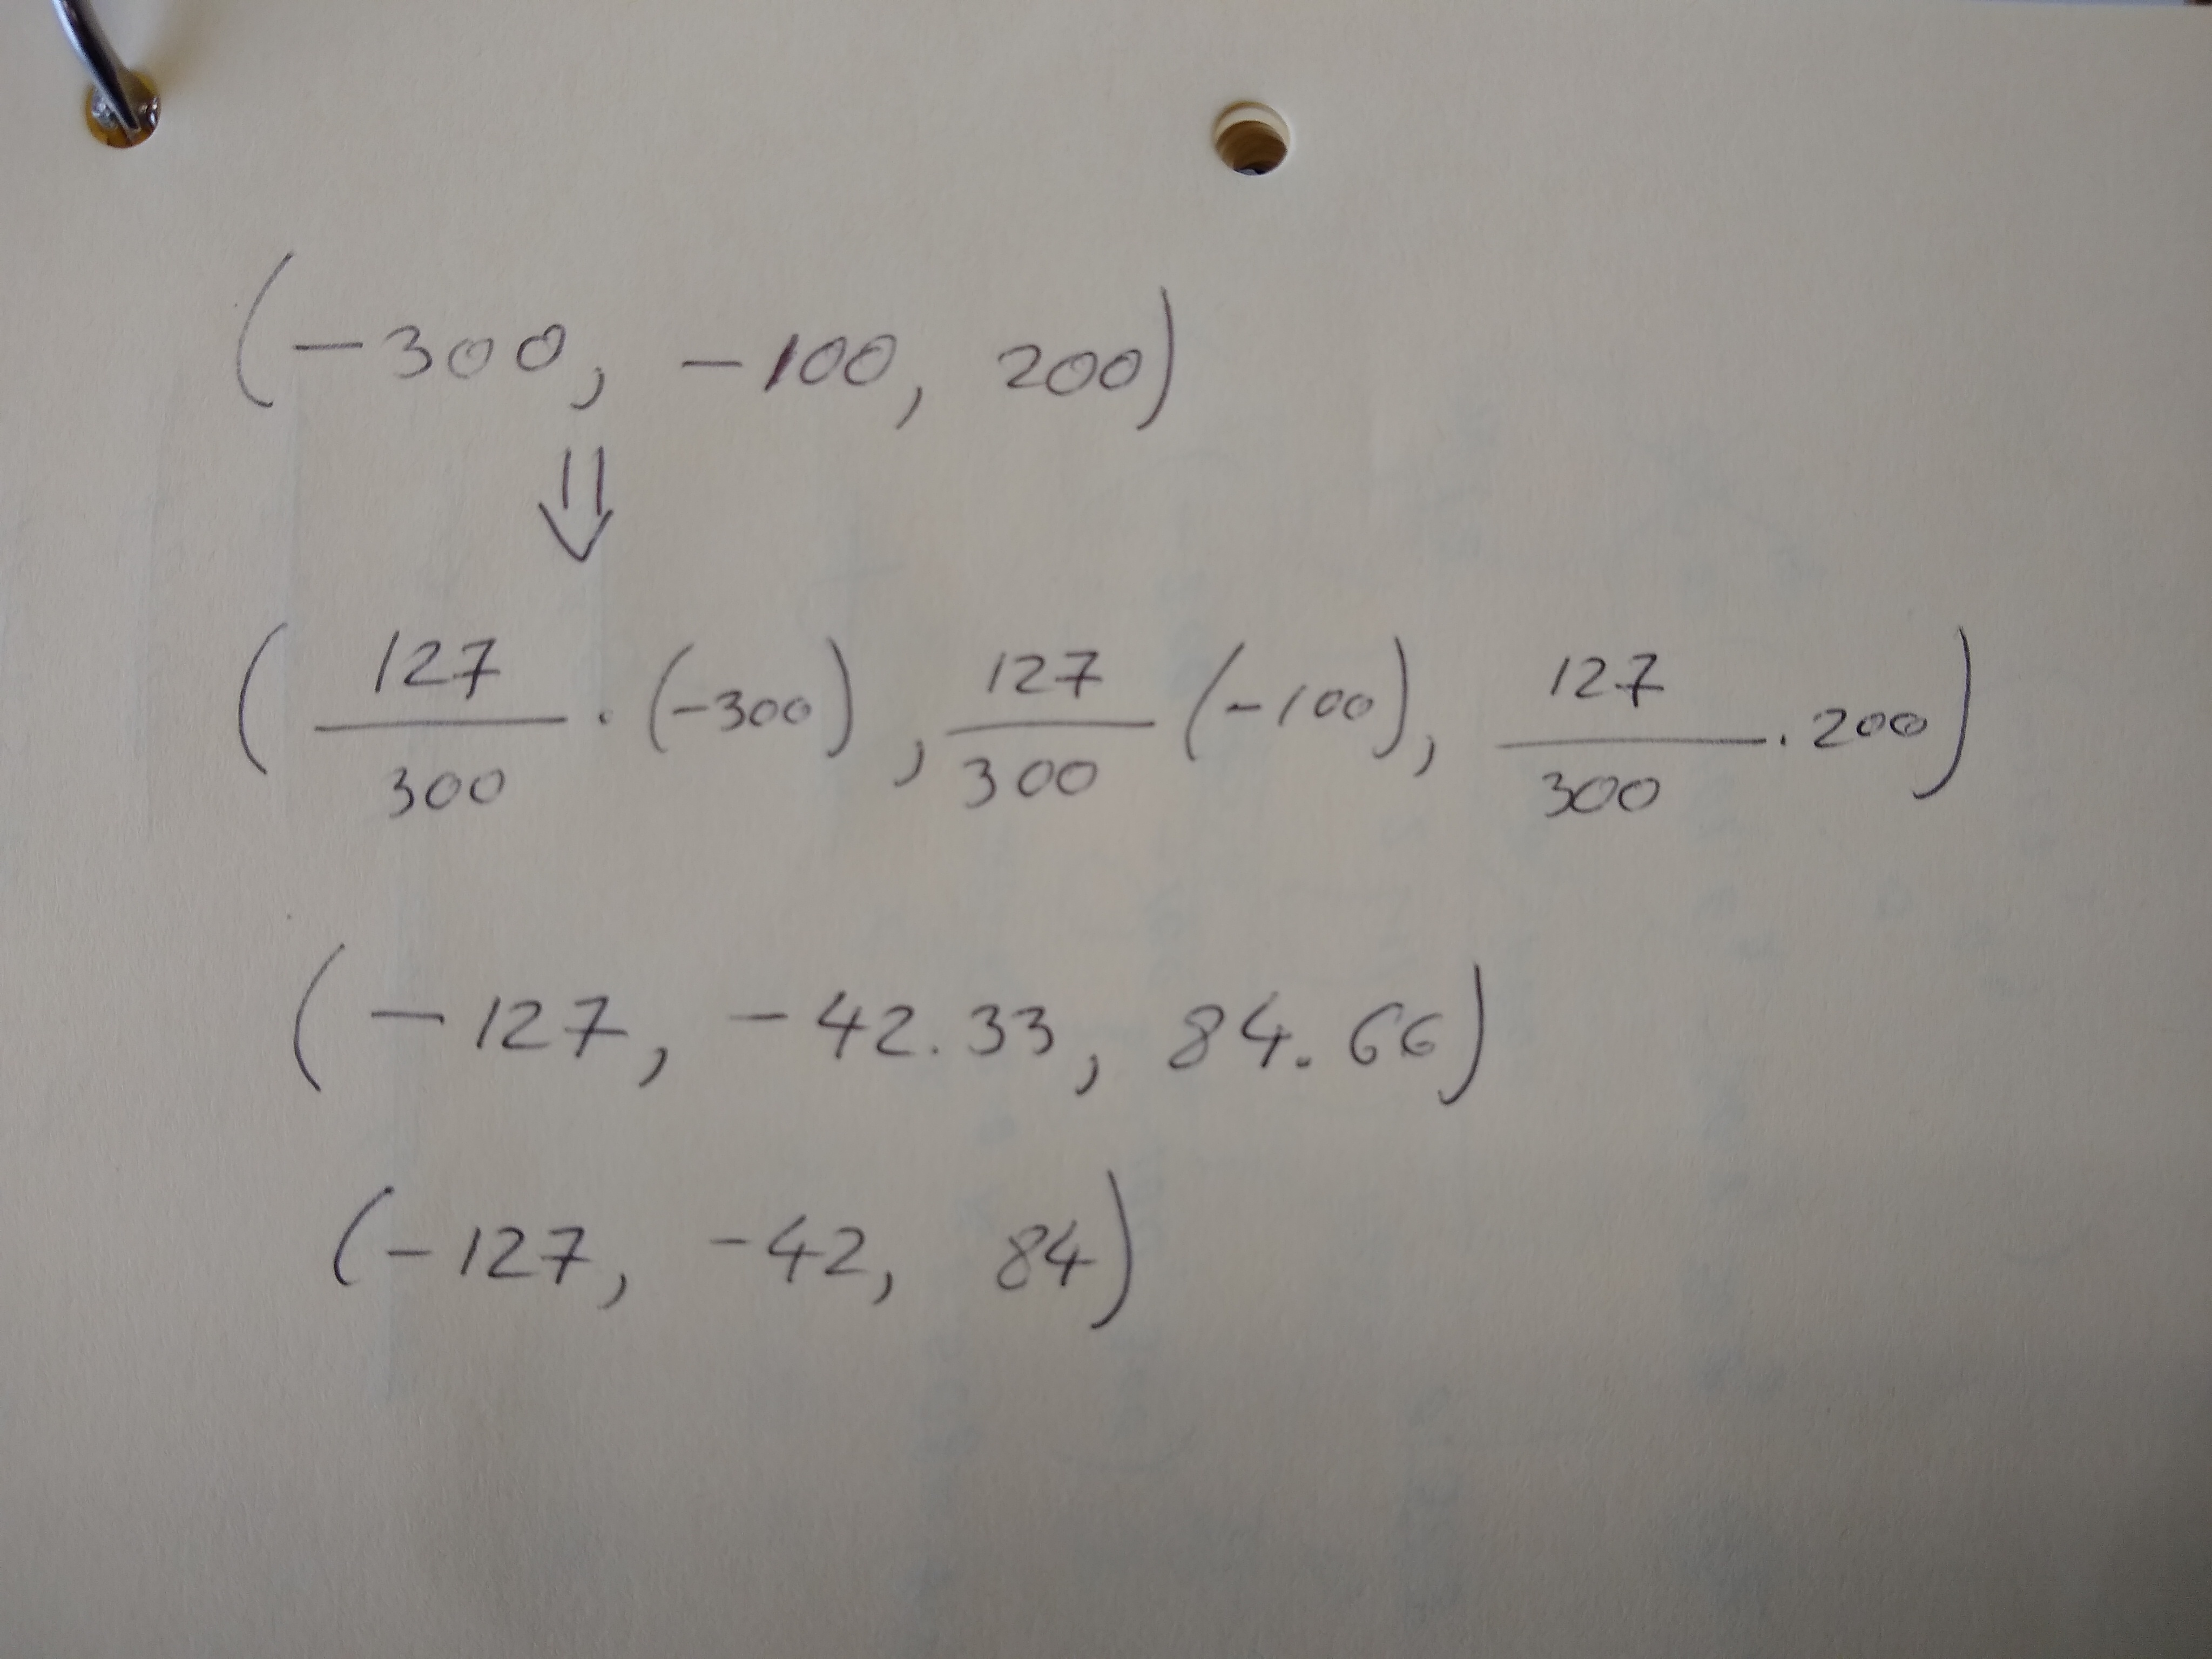 (-300, -100, 200)
⇓
(127/300 · (-300), 127/300 (-100), 127/300 · 200)
(-127, -42.33, 84.66)
(-127, -42, 84)